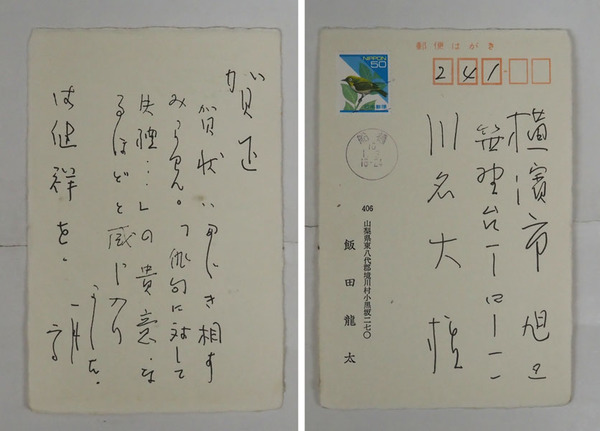 賀正
賀状いただき相す
みません。「俳句に対して
失礼…」の貴意、な
るほどと感じ入り
ました。
健祥を。
郵便はがき
NIPPON
50
241
横濱市旭区
笹野台
川名大様
406
山梨県東八代郡境川村小黒坂二七〇
飯田龍太